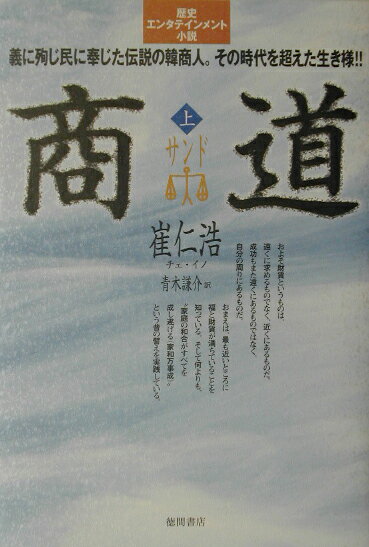 歴史
エンタテインメント
小説
義に殉じ民に奉じた伝説の韓商人。その時代を超えた生き様!!
商道
上
サンド
崔仁浩
チェ・イノ
青木謙介 訳
およそ財貨というものは
遠くに求めるものでなく、近くにあるものだ。
成功もまた遠くにあるものではなく、
自分の周りにあるものだ。
おまえは、最も近いところに
福と財貨が満ちていることを
知っている。そして何よりも、
“家庭の和合がすべてを
成し遂げる(家和万事成)”
という昔の誓えを実践している。
徳間書店